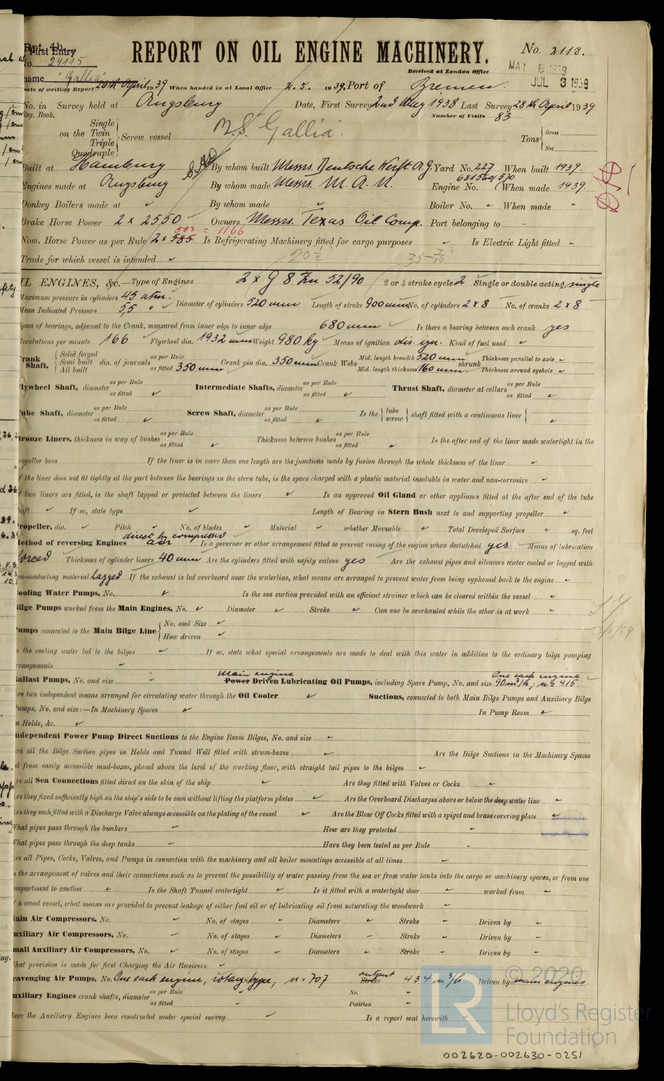 Rpt. 4b.
First Entry
No. 24115
REPORT ON OIL ENGINE MACHINERY.
No. 2113.
MAY 6 1939
JUL 3 1939
Received at London Office
name "Gallia"
Date of writing Report 20th April 1939 When handed in at Local Office 2.5. 1939. Port of Bremen
No. in Survey held at Augsburg Date, First Survey 2nd May 1938 Last Survey 28th April 1939
Reg. Book. Number of Visits 83
Single
on the Twin
Triple
Quadruple
Screw vessel M.S. Gallia. Tons Gross
Net
Built at Hamburg By whom built Messrs. Deutsche Werft A.G. Yard No. 227 When built 1939
Engines made at Augsburg By whom made Messrs. M.A.N. Engine No. 681560/570 When made 1939
Donkey Boilers made at By whom made Boiler No. When made
Brake Horse Power 2 x 2550 Owners Messrs. Texas Oil Comp. Port belonging to
Nom. Horse Power as per Rule 2 x 585 583 = 1166 Is Refrigerating Machinery fitted for cargo purposes Is Electric Light fitted
Trade for which vessel is intended
OIL ENGINES, &c.—Type of Engines 2 x G 8 Zu 52/90 2 or 4 stroke cycle 2 Single or double acting single
Maximum pressure in cylinders 45 atm. Diameter of cylinders 520 mm Length of stroke 900 mm No. of cylinders 2 x 8 No. of cranks 2 x 8
Mean Indicated Pressure 5,5
Span of bearings, adjacent to the Crank, measured from inner edge to inner edge 680 mm Is there a bearing between each crank yes
Revolutions per minute 166 Flywheel dia. 1932 mm Weight 980 kg Means of ignition dir. ign. Kind of fuel used
Crank Shaft, Solid forged Semi built All built dia. of journals as per Rule as fitted 350 mm Crank pin dia. 350 mm Crank Webs Mid. length breadth 520 mm Mid. length thickness 160 mm shrunk Thickness parallel to axis Thickness around eyehole
Flywheel Shaft, diameter as per Rule as fitted Intermediate Shafts, diameter as per Rule as fitted Thrust Shaft, diameter at collars as per Rule as fitted
Tube Shaft, diameter as per Rule as fitted Screw Shaft, diameter as per Rule as fitted Is the tube screw shaft fitted with a continuous liner
Bronze Liners, thickness in way of bushes as per Rule as fitted Thickness between bushes as per Rule as fitted Is the after end of the liner made watertight in the
propeller boss If the liner is in more than one length are the junctions made by fusion through the whole thickness of the liner
If the liner does not fit tightly at the part between the bearings in the stern tube, is the space charged with a plastic material insoluble in water and non-corrosive
If two liners are fitted, is the shaft lapped or protected between the liners Is an approved Oil Gland or other appliance fitted at the after end of the tube
shaft If so, state type Length of Bearing in Stern Bush next to and supporting propeller
Propeller, dia. Pitch No. of blades Material whether Moveable Total Developed Surface sq. feet
Method of reversing Engines direct by compressed air Is a governor or other arrangement fitted to prevent racing of the engine when declutched yes Means of lubrication
forced Thickness of cylinder liners 40 mm Are the cylinders fitted with safety valves yes Are the exhaust pipes and silencers water cooled or lagged with
non-conducting material lagged If the exhaust is led overboard near the waterline, what means are arranged to prevent water from being syphoned back to the engine
Cooling Water Pumps, No. Is the sea suction provided with an efficient strainer which can be cleared within the vessel
Bilge Pumps worked from the Main Engines, No. Diameter Stroke Can one be overhauled while the other is at work
Pumps connected to the Main Bilge Line No. and Size
How driven
Is the cooling water led to the bilges If so, state what special arrangements are made to deal with this water in addition to the ordinary bilge pumping
arrangements
Ballast Pumps, No. and size main engine Power Driven Lubricating Oil Pumps, including Spare Pump, No. and size One each engine 90 m³/h
Are two independent means arranged for circulating water through the Oil Cooler Suctions, connected to both Main Bilge Pumps and Auxiliary Bilge
Pumps, No. and size:—In Machinery Spaces In Pump Room
In Holds, &c.
Independent Power Pump Direct Suctions to the Engine Room Bilges, No. and size
Are all the Bilge Suction pipes in Holds and Tunnel Well fitted with strum-boxes Are the Bilge Suctions in the Machinery Spaces
led from easily accessible mud-boxes, placed above the level of the working floor, with straight tail pipes to the bilges
Are all Sea Connections fitted direct on the skin of the ship Are they fitted with Valves or Cocks
Are they fixed sufficiently high on the ship's side to be seen without lifting the platform plates Are the Overboard Discharges above or below the deep water line
Are they each fitted with a Discharge Valve always accessible on the plating of the vessel Are the Blow Off Cocks fitted with a spigot and brass covering plate
What pipes pass through the bunkers How are they protected
What pipes pass through the deep tanks Have they been tested as per Rule
Are all Pipes, Cocks, Valves, and Pumps in connection with the machinery and all boiler mountings accessible at all times
Is the arrangement of valves and their connections such as to prevent the possibility of water passing from the sea or from water tanks into the cargo or machinery spaces, or from one
compartment to another Is the Shaft Tunnel watertight Is it fitted with a watertight door worked from
If a wood vessel, what means are provided to prevent leakage of either fuel oil or of lubricating oil from saturating the woodwork
Main Air Compressors, No. No. of stages Diameters Stroke Driven by
Auxiliary Air Compressors, No. No. of stages Diameters Stroke Driven by
Small Auxiliary Air Compressors, No. No. of stages Diameters Stroke Driven by
What provision is made for first Charging the Air Receivers
Scavenging Air Pumps, No. One each engine, rotary type, n = 707 output Stroke 434 m³/h Driven by main engines
Auxiliary Engines crank shafts, diameter as per Rule as fitted No.
Position
Have the Auxiliary Engines been constructed under special survey Is a report sent herewith
© 2020
Lloyd's Register
Foundation
LR
002620-002630-0251